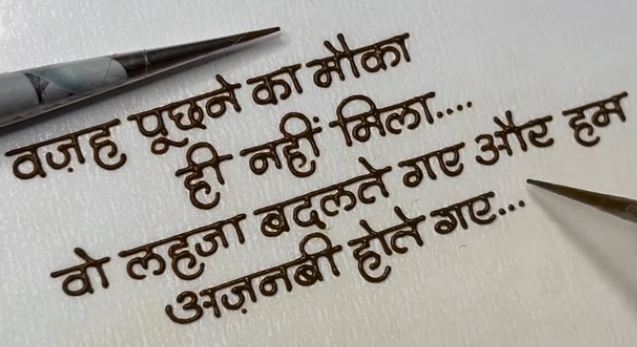 वज़ह पूछने का मौका
ही नहीं मिला....
वो लहजा बदलते गए और हम
अज़नबी होते गए...